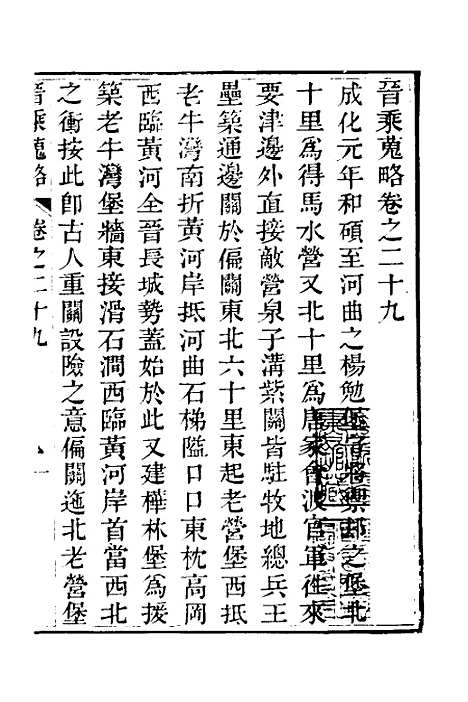 晉乘蒐略卷之二十九
成化元年和碩至河曲之楊勉堡官將禦却之堡北
十里爲得馬水營又北十里爲唐家會渡官軍往來
要津邊外直接敵營泉子溝紫關皆駐牧地總兵王
壘築通邊關於偏關東北六十里東起老營堡西抵
老牛灣南折黃河岸抵河曲石梯隘口口東枕高岡
西臨黃河全晉長城勢蓋始於此又建樺林堡爲援
築老牛灣堡牆東接滑石澗西臨黃河岸首當西北
之衝按此卽古人重關設險之意偏關迤北老營堡
晉乘蒐略 卷之二十九 一